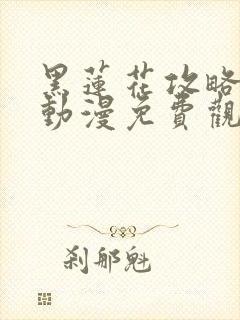 黑蓮花攻略
動漫免費觀
剎那魁